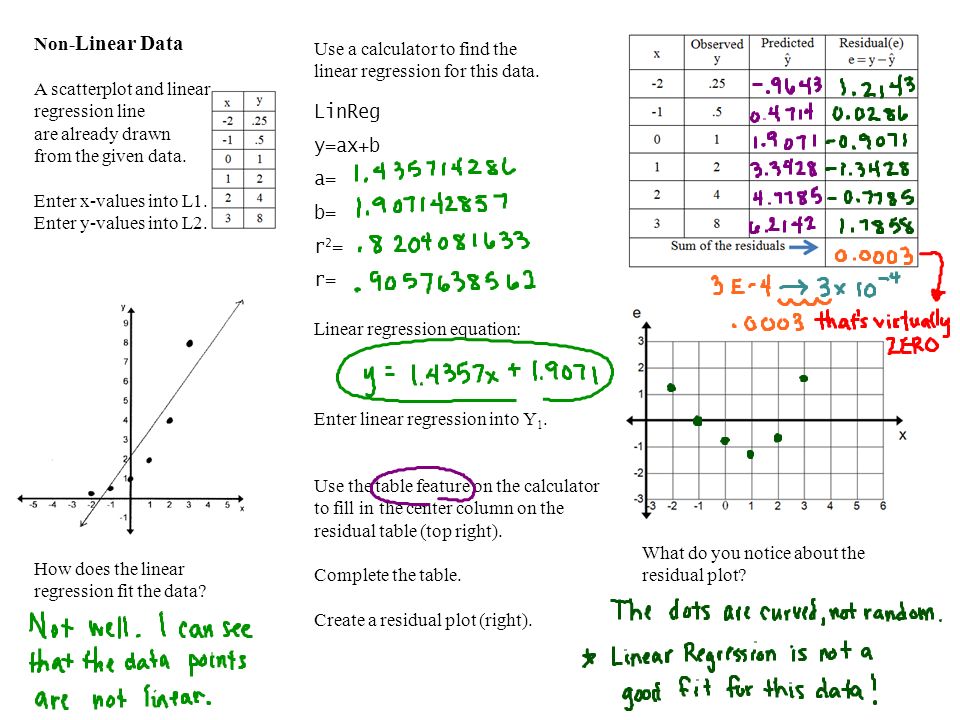 Non-Linear Data
A scatterplot and linear
regression line
are already drawn
from the given data.
Enter x-values into L1.
Enter y-values into L2.
x y
-2 .25
-1 .5
0 1
1 2
2 4
3 8
y
9
8
7
6
5
4
3
2
1
-1
-5 -4 -3 -2 -1 1 2 3 4 5 x
How does the linear
regression fit the data?
Not well. I can see
that the data points
are not linear.
Use a calculator to find the
linear regression for this data.
LinReg
y=ax+b
a= 1.435714286
b= 1.907142857
r²= .8204081633
r= .9057638562
Linear regression equation:
y = 1.4357x + 1.9071
Enter linear regression into Y₁.
Use the table feature on the calculator
to fill in the center column on the
residual table (top right).
Complete the table.
Create a residual plot (right).
x Observed y Predicted ŷ Residual(e) e = y – ŷ
-2 .25 -.9643 1.2143
-1 .5 0.4714 0.0286
0 1 1.9071 -0.9071
1 2 3.3428 -1.3428
2 4 4.7785 -0.7785
3 8 6.2142 1.7858
Sum of the residuals → 0.0003
3 E-4 → 3 x 10⁻⁴
.0003 that's virtually
ZERO
e
3
2
1
-1
-2
-3
x
-2 -1 0 1 2 3 4 5 6
What do you notice about the
residual plot?
The dots are curved, not random.
* Linear Regression is not a
good fit for this data!